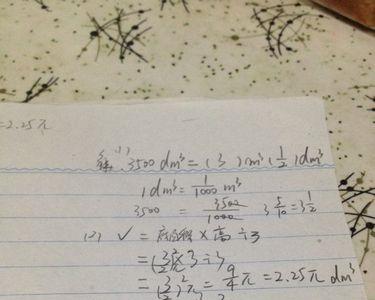 =2.25π
(1) 3500 dm³ = (3)m³(1/2)dm³
1dm³ = 1/1000 m³
3500 = 3500/1000 3 5/10 = 3 1/2
(2) V = 底面积 × 高 ÷ 3
= (3/2)²π 3 ÷ 3
= (3/2)²π = 9/4 π = 2.25π dm³